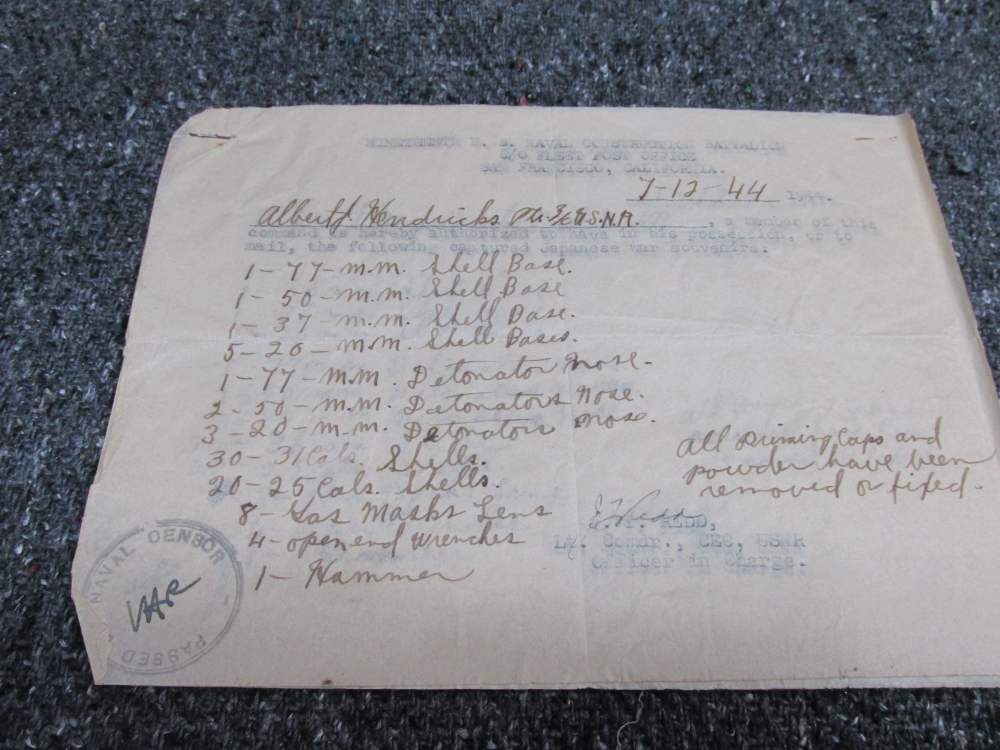 NINETEENTH U. S. NAVAL CONSTRUCTION BATTALION
C/O FLEET POST OFFICE
SAN FRANCISCO, CALIFORNIA.
7-12-44 194 .
Albert J. Hendricks U.S.N.R. , a member of this
command is hereby authorized to have in his possession, or to
mail, the following captured Japanese war souvenirs:
1-77-m.m. Shell Base.
1-50-m.m. Shell Base
1-37-m.m. Shell Base.
5-20-m.m. Shell Bases.
1-77-m.m. Detonator nose.
2-50-m.m. Detonators Nose.
3-20-m.m. Detonators nose.
30-31 Cals. Shells.
20-25 Cals. Shells.
8- Gas Masks Lens
4- open end Wrenches
1- Hammer
All Priming Caps and
powder have been
removed or fired.
REDD,
Lt. Comdr., CEC, USNR
Officer in Charge.
NAVAL CENSOR
PASSED